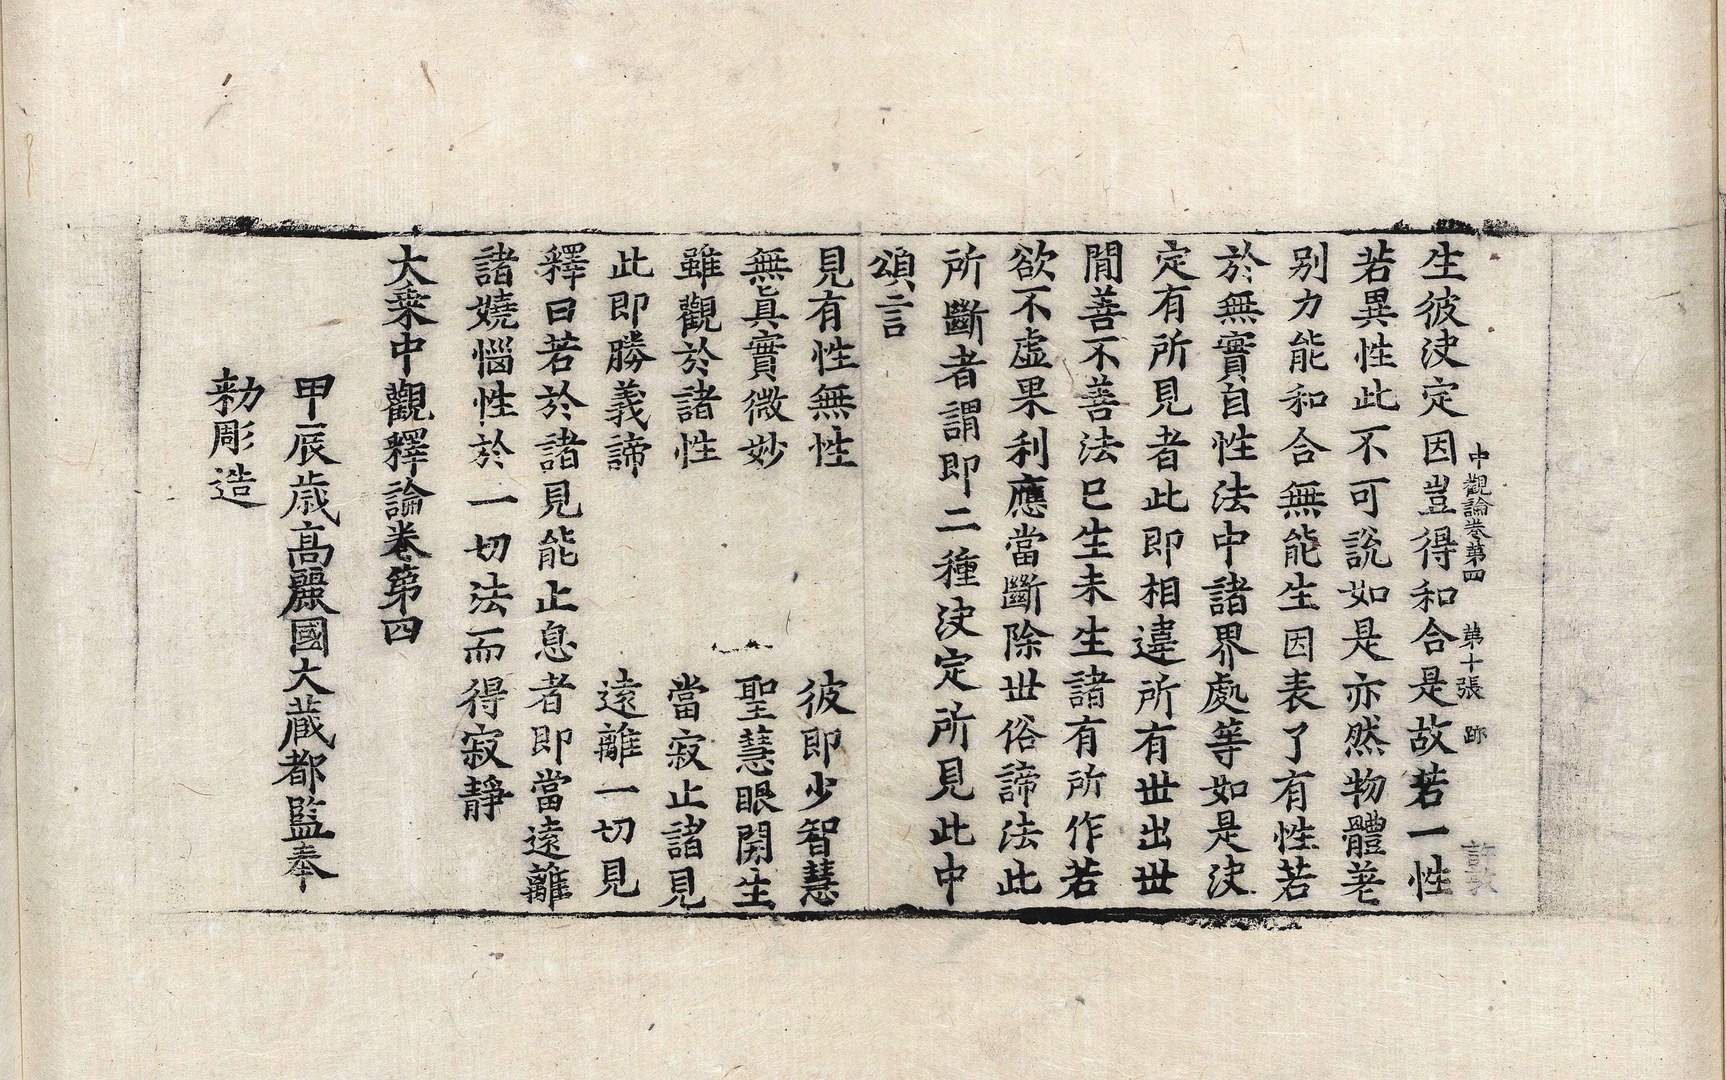 中觀論卷第四 第十張 跡
生彼决定因豈得和合是故若一性
若異性此不可說如是亦然物體差
別力能和合無能生因表了有性若
於無實自性法中諸界處等如是决
定有所見者此即相違所有世出世
閒善不善法已生未生諸有所作若
欲不虛果利應當斷除世俗諦法此
所斷者謂即二種决定所見此中
頌言
見有性無性 彼即少智慧
無眞實微妙 聖慧眼開生
雖觀於諸性 當寂止諸見
此即勝義諦 遠離一切見
釋曰若於諸見能止息者即當遠離
諸嬈惱性於一切法而得寂靜
大乘中觀釋論卷第四
甲辰歳高麗國大藏都監奉
勑彫造